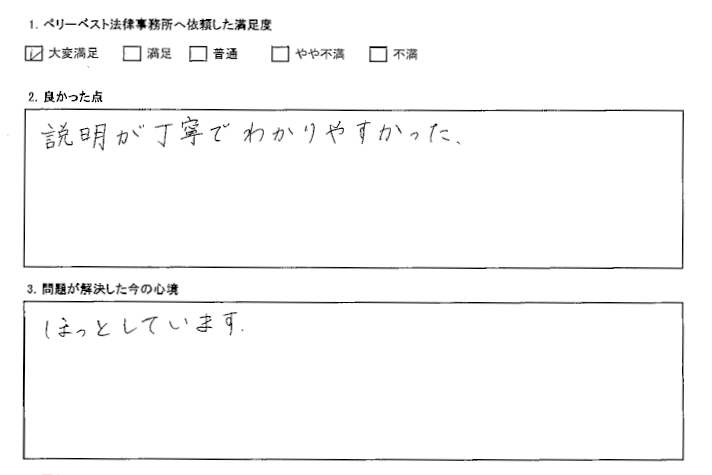 1. ベリーベスト法律事務所へ依頼した満足度
☑ 大変満足 □ 満足 □ 普通 □ やや不満 □ 不満
2. 良かった点
説明が丁寧でわかりやすかった.
3. 問題が解決した今の心境
ほっとしています.